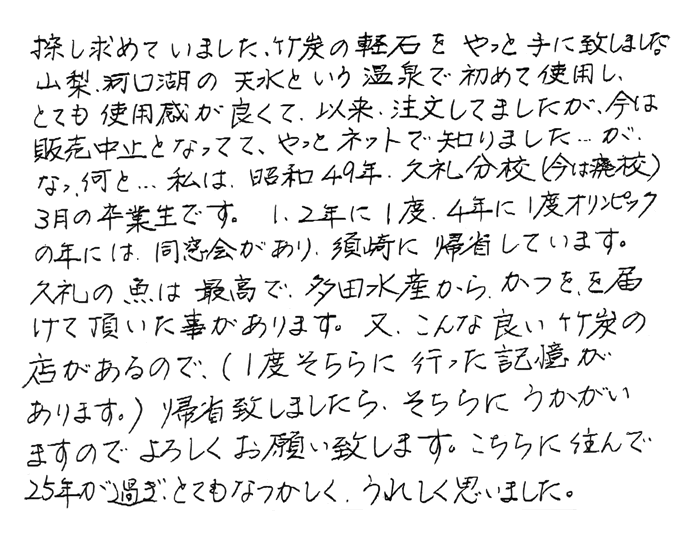 探し求めていました、竹炭の軽石を やっと手に致しました。
山梨、河口湖の 天水という 温泉で 初めて使用し、
とても 使用感が良くて、以来、注文してましたが、今は
販売中止となってて、やっと ネットで 知りました…が、
なっ、何と… 私は、昭和49年、久礼分校(今は廃校)
3月の卒業生です。 1、2年に1度、4年に1度オリンピック
の年には、同窓会があり、須崎に 帰省しています。
久礼の魚は 最高で、多田水産から、かつを、を届
けて頂いた事があります。又、こんな良い竹炭の
店があるので、(1度そちらに 行った記憶が
あります。) 帰省致しましたら、そちらに うかがい
ますので よろしくお願い致します。こちらに住んで
25年が過ぎ、とてもなつかしく、うれしく思いました。